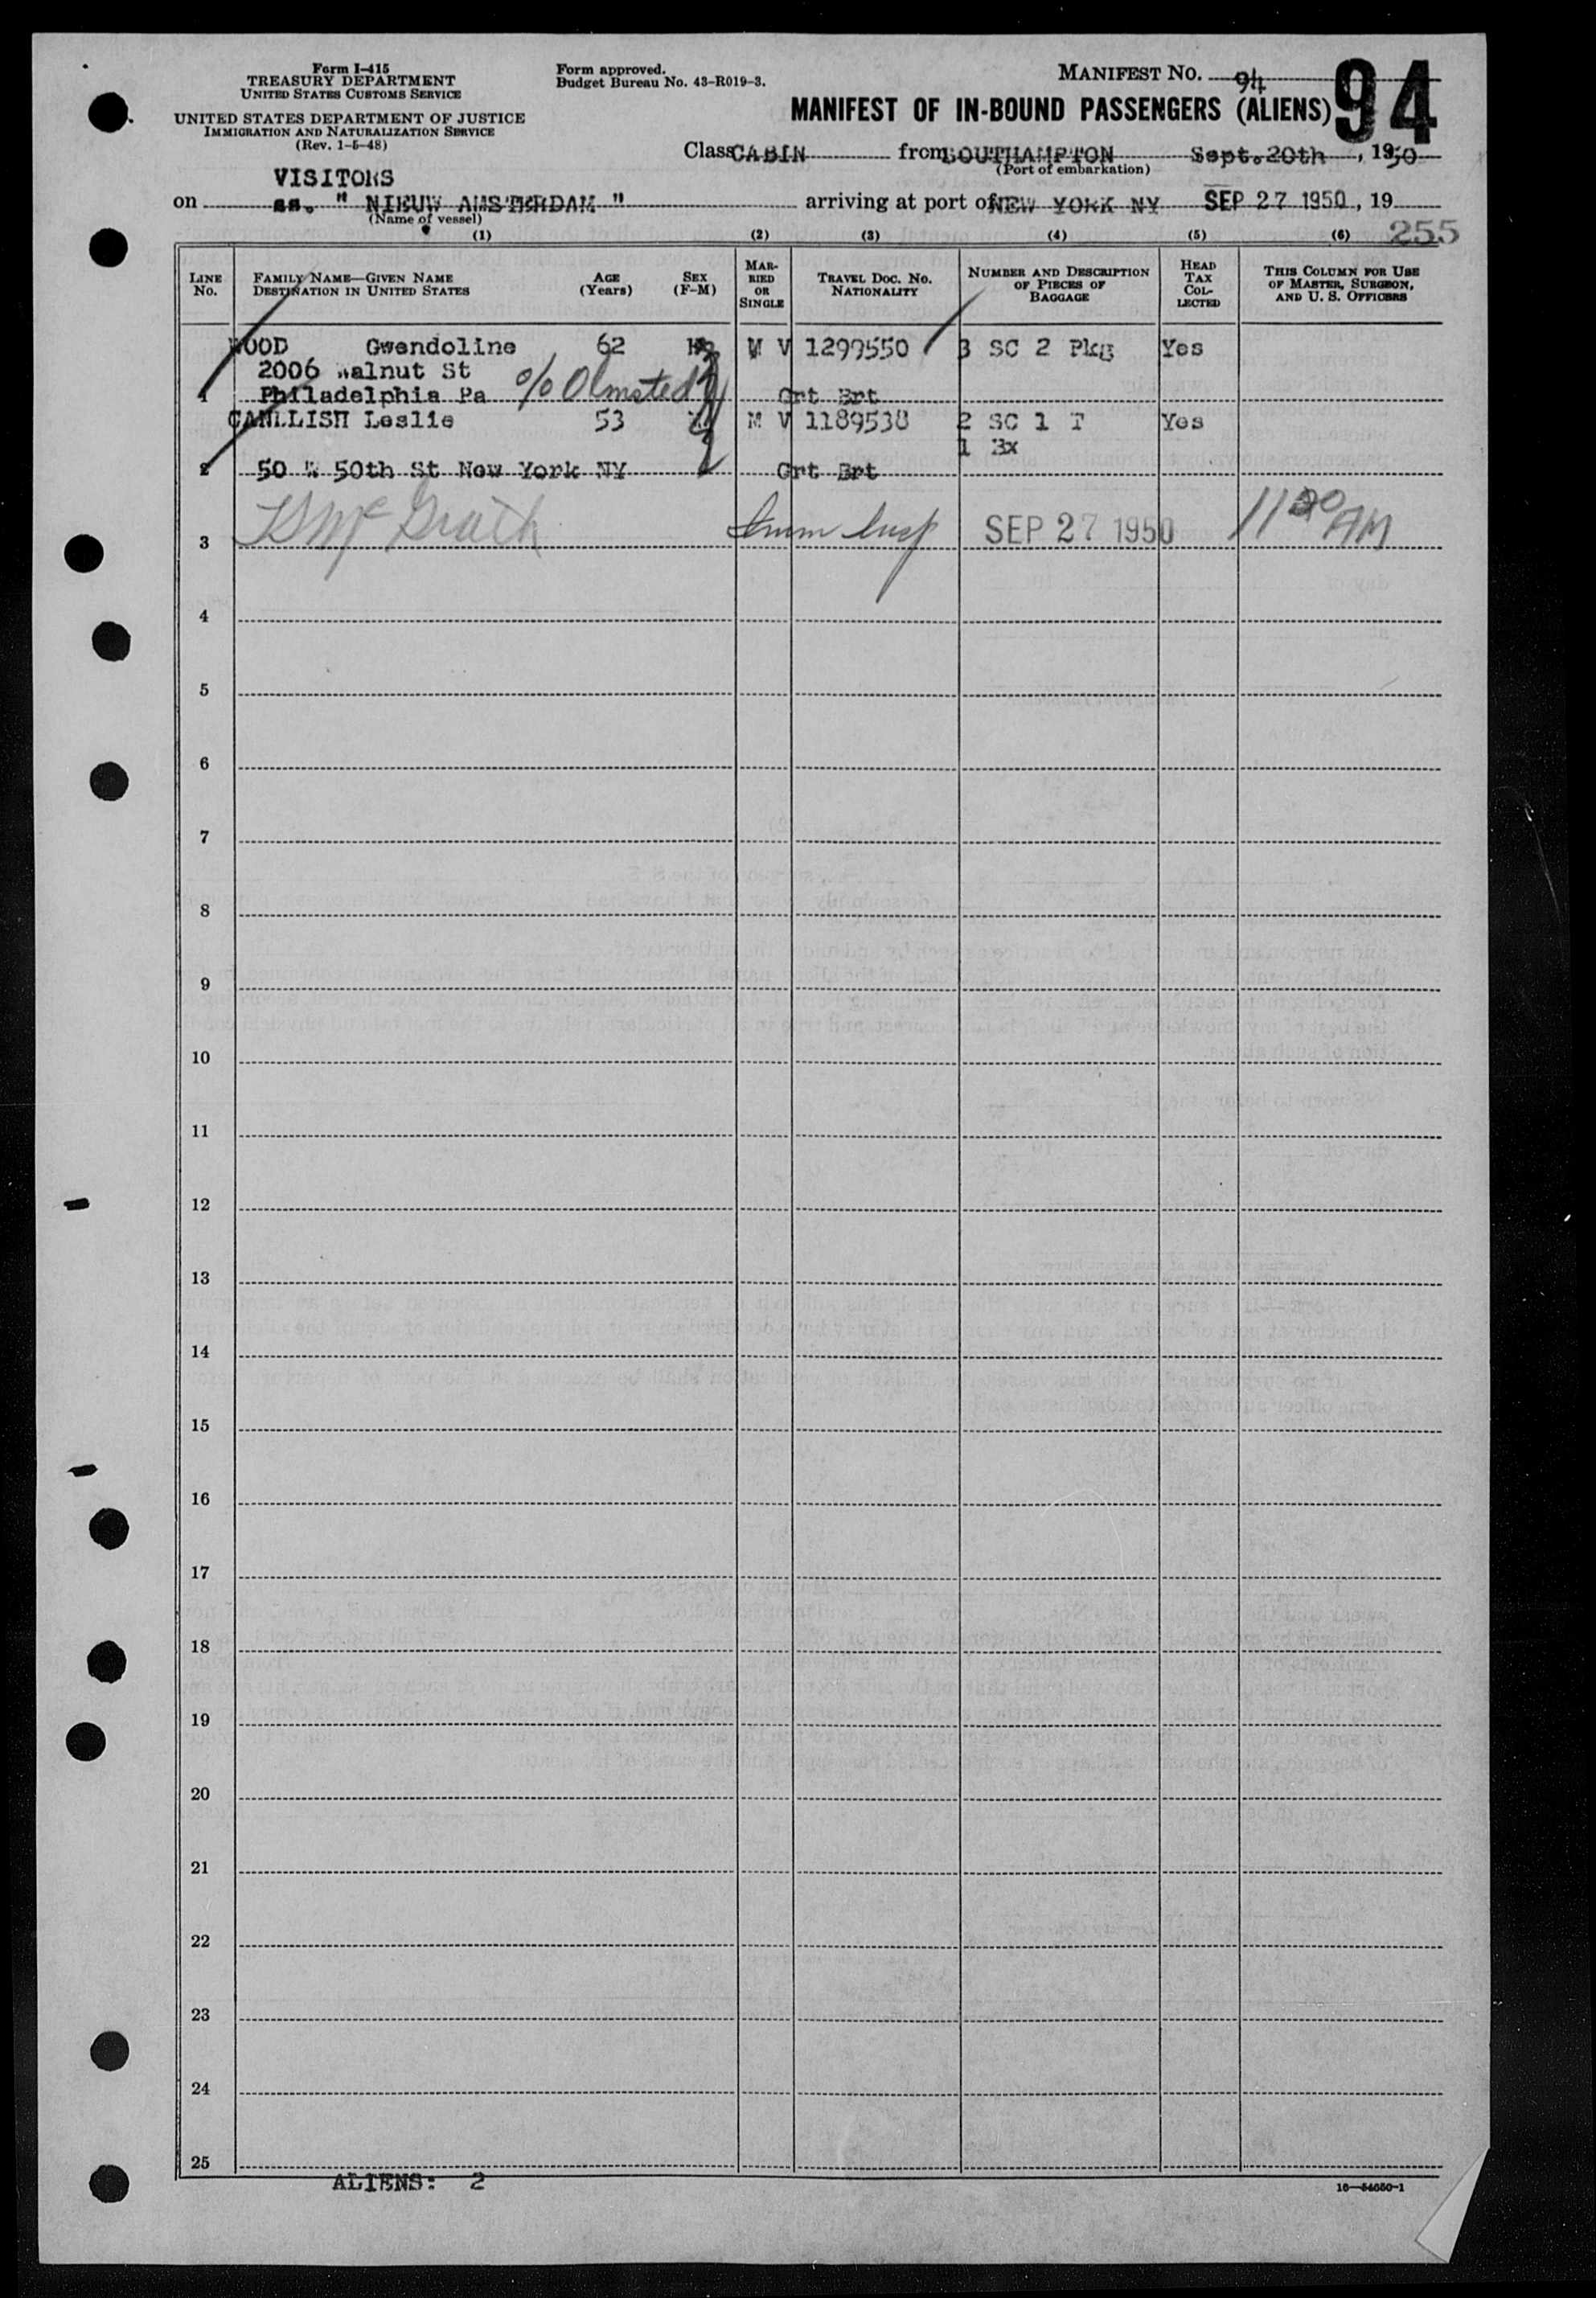 Form I-415
TREASURY DEPARTMENT
UNITED STATES CUSTOMS SERVICE
UNITED STATES DEPARTMENT OF JUSTICE
IMMIGRATION AND NATURALIZATION SERVICE
(Rev. 1-5-48)
Form approved.
Budget Bureau No. 43-R019-3.
MANIFEST NO. 94
94
MANIFEST OF IN-BOUND PASSENGERS (ALIENS)
Class CABIN from SOUTHAMPTON Sept. 20th, 1950
(Port of embarkation)
VISITORS
on ss. " NIEUW AMSTERDAM " arriving at port of NEW YORK NY SEP 27 1950, 19
(Name of vessel)
(1) (2) (3) (4) (5) (6) 255
LINE NO.
FAMILY NAME—GIVEN NAME
DESTINATION IN UNITED STATES
AGE (Years)
SEX (F-M)
MARRIED OR SINGLE
TRAVEL DOC. NO.
NATIONALITY
NUMBER AND DESCRIPTION OF PIECES OF BAGGAGE
HEAD TAX COLLECTED
THIS COLUMN FOR USE OF MASTER, SURGEON, AND U. S. OFFICERS
WOOD Gwendoline 62 M V 1299550 3 SC 2 Pkg Yes
2006 Walnut St
1 Philadelphia Pa c/o Olmsted Grt Brt
Leslie 53 M V 1189538 2 SC 1 T Yes
1 Bx
2 50 W 50th St New York NY Grt Brt
3 McGrath Imm Insp SEP 27 1950 11 20 AM
4
5
6
7
8
9
10
11
12
13
14
15
16
17
18
19
20
21
22
23
24
25
ALIENS: 2
16—54650-1